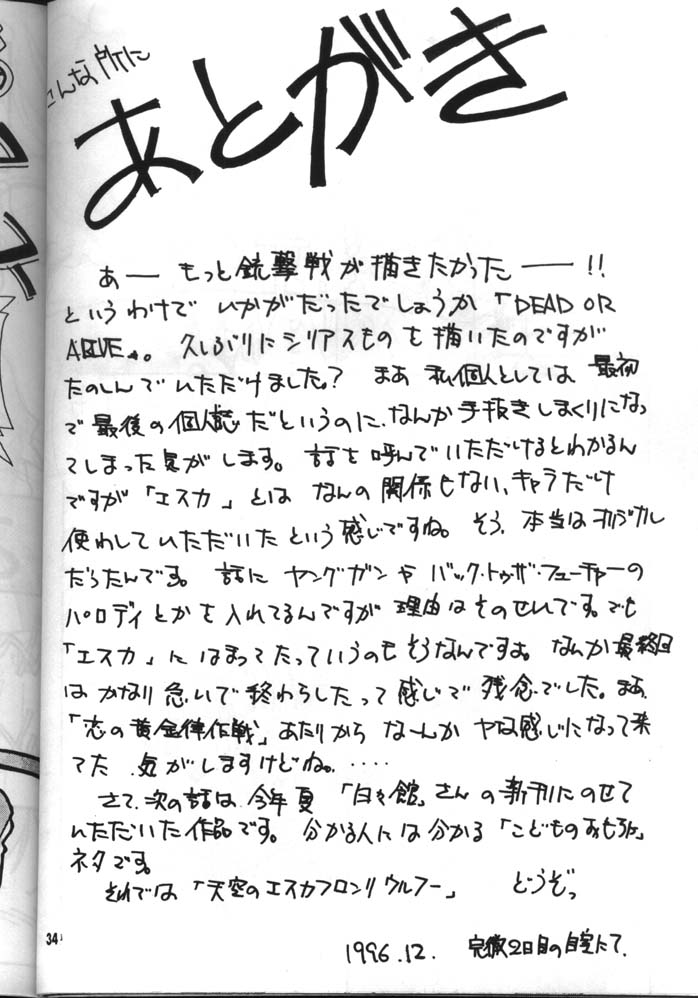 こんな所に
あとがき
あー もっと銃撃戦が描きたかったー!!
というわけで いかがだったでしょうか「DEAD OR
ALIVE」。 久しぶりにシリアスものを描いたのですが
たのしんでいただけました? まあ 私個人としては 最初
で最後の個人誌だというのに、なんか手抜きしまくりになっ
てしまった気がします。 話を呼んでいただけるとわかるん
ですが「エスカ」とは なんの関係もない、キャラだけ
使わしていただいたという感じですね。 そう、本当はオリジナル
だったんです。 話に ヤングガンや バック・トゥ・ザ・フューチャーの
パロディとかを入れてるんですが 理由はそのせいです。でも
「エスカ」にはまってたっていうのもそうなんですよ。なんか最終回
はかなり急いで終わらしたって感じで残念でした。まあ、
「恋の黄金律作戦」あたりから なーんか ヤな感じになって来
てた 気がしますけどね。・・・・
さて、次の話は、今年夏 「日々館」さんの新刊にのせて
いただいた作品です。 分かる人には分かる「こどものおもちゃ」
ネタです。
それでは「天空のエスカフロンリウルフー」 どうぞっ
34
1996.12. 完徹2日目の自室にて.